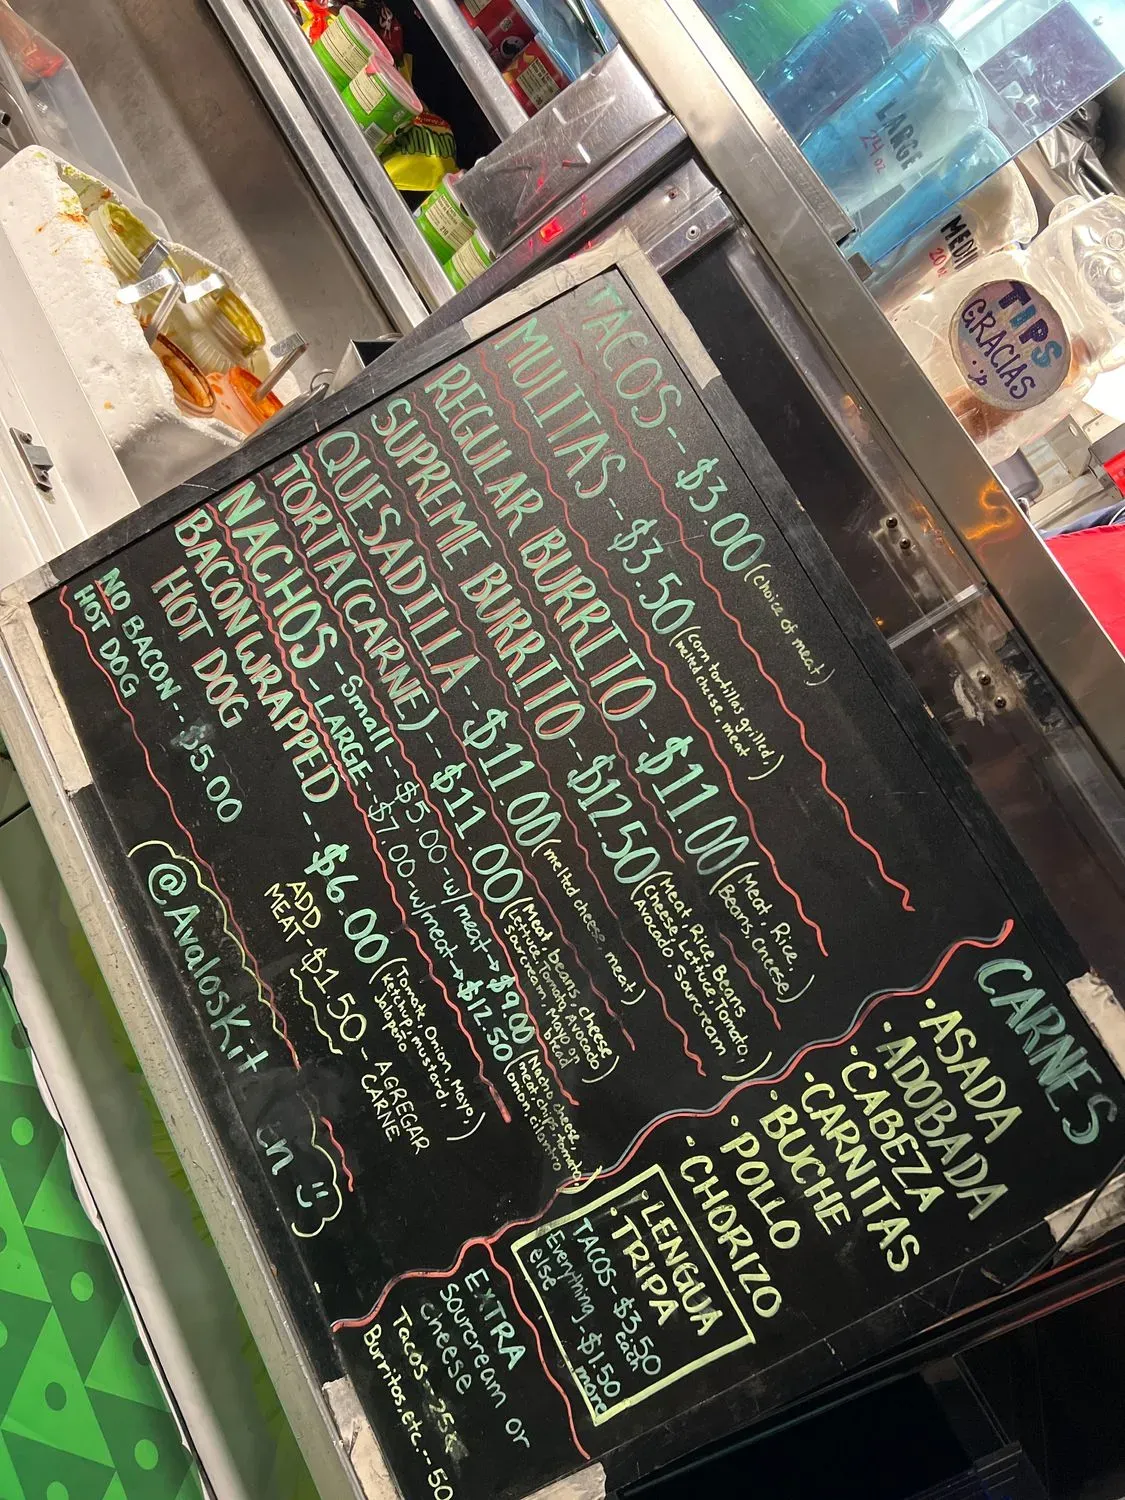 TACOS -- $3.00 (choice of meat)
MULITAS -- $3.50 (corn tortillas grilled,
melted cheese, meat)
REGULAR BURRITO -- $11.00 (Meat, Rice,
Beans, cheese)
SUPREME BURRITO -- $12.50 (Meat, Rice, Beans
Cheese, Lettuce, Tomato,
Avocado, Sourcream)
QUESADILLA -- $11.00 (melted cheese, meat)
TORTA (CARNE) -- $11.00 (Meat, beans, cheese
Lettuce, Tomato, Avocado
Sourcream, Mayo on
bread)
NACHOS - Small -- $5.00 - w/meat → $9.00 (Nacho cheese,
- LARGE - $7.00 - w/meat → $12.50 meat, chips, tomato,
onion, cilantro)
BACON WRAPPED
HOT DOG -- $6.00 (Tomato, Onion, Mayo,
Ketchup, mustard,
Jalapeño)
NO BACON -- $5.00
HOT DOG
ADD
MEAT - $1.50 - AGREGAR
CARNE
@AvaloSKit cn
CARNES
• ASADA
• ADOBADA
• CABEZA
• CARNITAS
• BUCHE
• POLLO
• CHORIZO
• LENGUA
• TRIPA
TACOS - $3.50
each
Everything - $1.50
else more
EXTRA
sourcream or
cheese
Tacos -- 25¢
Burritos, etc. -- 50
LARGE
24 oz
20
TIPS
GRACIAS
:P